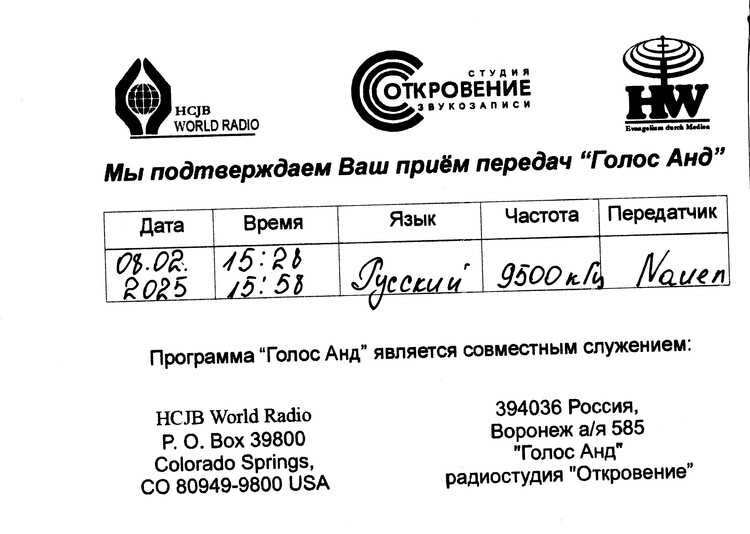 HCJB
WORLD RADIO
СТУДИЯ
ОТКРОВЕНИЕ
ЗВУКОЗАПИСИ
HW
Evangelium durch Medien
Мы подтверждаем Ваш приём передач “Голос Анд”
Дата Время Язык Частота Передатчик
08.02. 2025 15:28 15:58 Русский 9500 кГц Nauen
Программа “Голос Анд” является совместным служением:
HCJB World Radio
P. O. Box 39800
Colorado Springs,
CO 80949-9800 USA
394036 Россия,
Воронеж а/я 585
"Голос Анд"
радиостудия "Откровение”